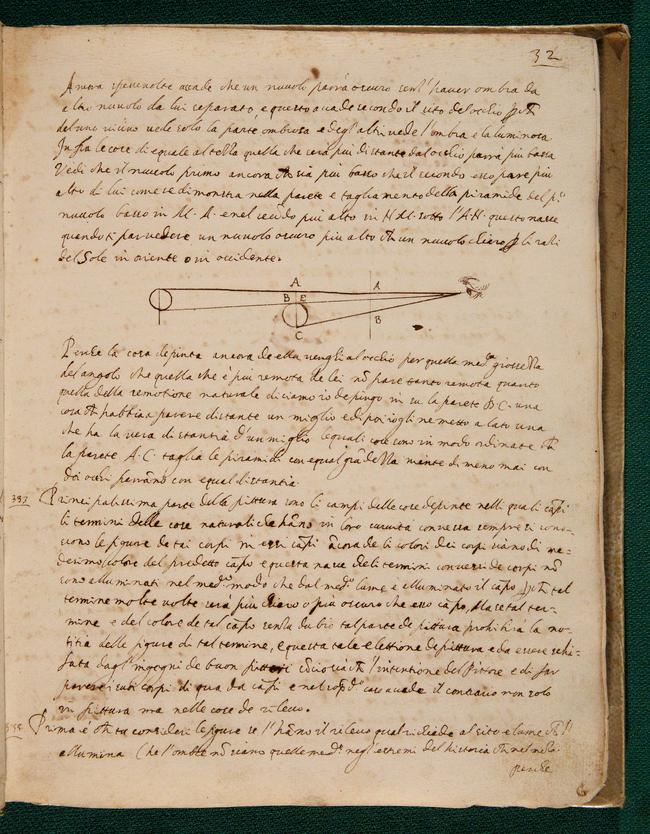 32
Ancora spesse volte accade che un nuvolo parrà oscuro senz'haver ombra da
altro nuvolo da lui separato, e questo accade secondo il sito del occhio
del uno vicino vede solo la parte ombrosa e degl'altri vede l'ombra e la luminosa
Infra le cose di equale altezza quella che sarà più distante dal occhio parrà più bassa
Vedi che il nuvolo primo ancora ch sia più basso che il secondo esso pare più
alto di lui come si dimonstra nella parete e tagliamento della piramide del p.º
nuvolo basso in M. A. e nel secõdo più alto in N M. sotto l'A.N. questo nasce
quando ti par vedere un nuvolo oscuro più alto ch un nuvolo chiero li razi
del Sole in oriente o in occidente.
A A
B E
C B
Perche la cosa depinta ancora che ella venghi al occhio per quella med.ª grossezza
del angolo che quella che è più remota de lei nõ pare tanto remota quanto
quella della remotione naturale diciamo io depingo in su la parete B C. una
cosa ch habbia a parere distante un miglio e di poi io gli ne metto a lato una
che ha la vera distantia d'un miglio le quali cose sono in modo ordinate ch
la parete A C. taglia le piramidi con equal grãdezza niente di meno mai con
doi occhi parrãno con equal distantia.
337 Principalissima parte della pittura sono li campi delle cose depinte nelli quali cãpi
li termini delle cose naturali che hãno in loro curvità convessa sempre si cono-
scono le figure de tai corpi in essi cãpi ãcora che li colori dei corpi siano di me-
desimo colore del predetto cãpo e questa nasce che li termini convessi de corpi nõ
sono elluminati nel med.º modo che dal med.º lume è elluminato il cãpo tal
termine molte volte sarà più chiaro o più oscuro che esso cãpo, Ma se tal ter-
mine e del colore de tal cãpo senza dubio tal parte de pittura prohibirà la no-
titia delle figure di tal termine, e questa tale elettione de pittura e da essere schi-
fata dagl'ingegni de buon pittori l'intentione del Pittore e di far
parere i suoi corpi di qua da cãpi e nel caso accade il contrario non solo
in pittura ma nelle cose de rilievo.
338 Prima e ch tu consideri le figure se l'hãno il rilievo qual richiede al sito e lume ch l'
allumina Che l'ombre nõ siano quelle med.e negl'estremi del historia ch nel mezo
perche